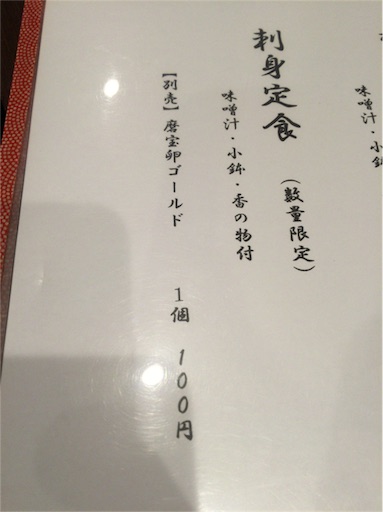 味噌汁・小鉢
刺身定食
(数量限定)
味噌汁・小鉢・香の物付
【別売】磨宝卵ゴールド
1個 100円